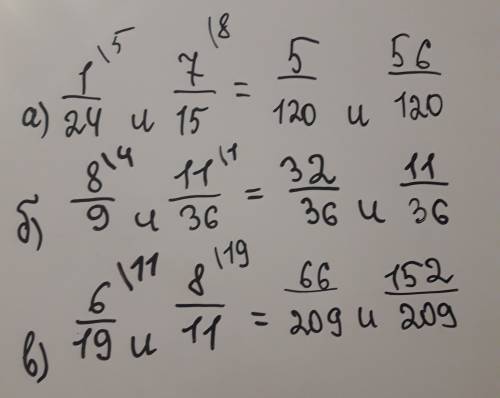 а) 1/24 \5 и 7/15 \8 = 5/120 и 56/120
б) 8/9 \4 и 11/36 \1 = 32/36 и 11/36
в) 6/19 \11 и 8/11 \19 = 66/209 и 152/209